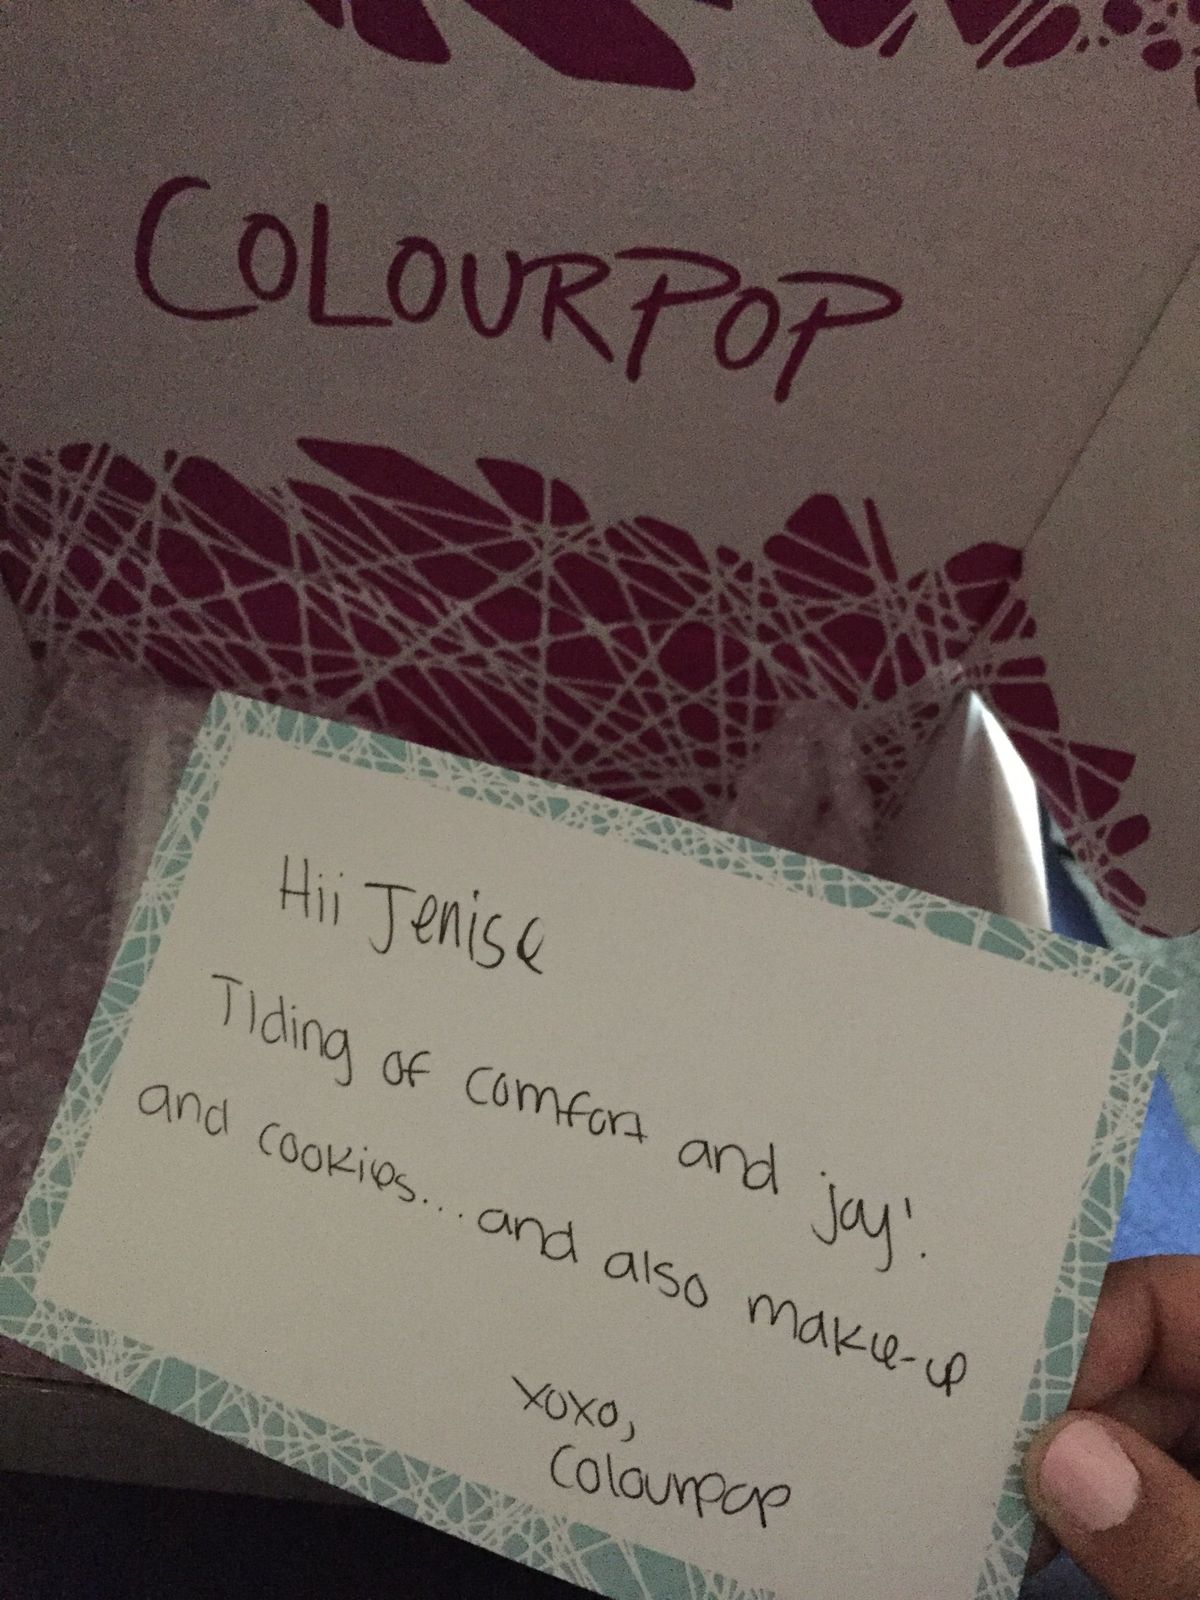 COLOURPOP
Hii Jenise
Tiding of comfort and joy!
and cookies... and also make-up
xoxo,
Colourpop